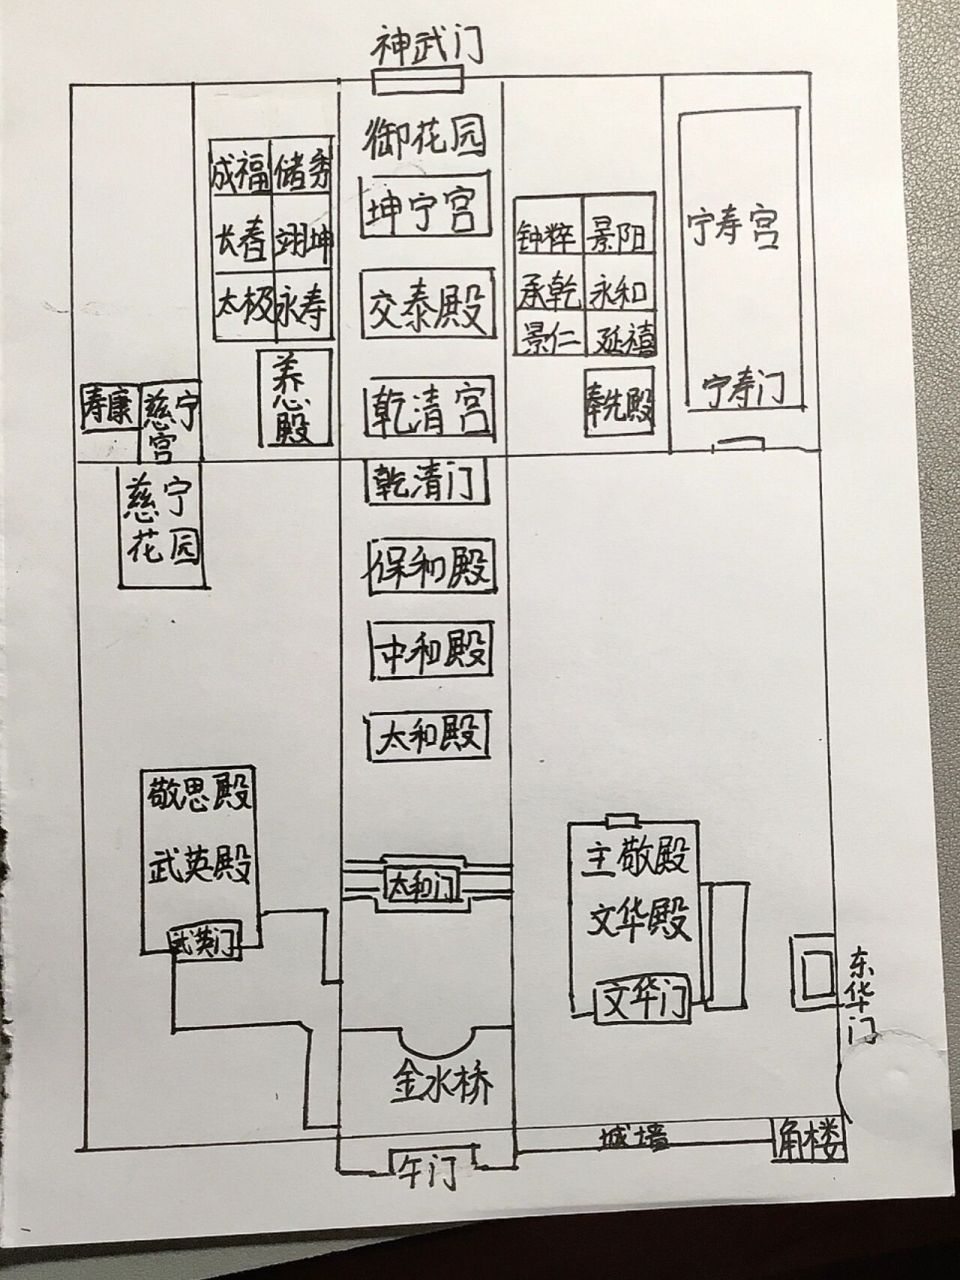 神武门
御花园
成福 储秀
坤宁宫
长春 翊坤
钟粹 景阳
宁寿宫
太极 永寿
交泰殿
承乾 永和
景仁 延禧
养心殿
寿康
慈宁宫
乾清宫
奉先殿
宁寿门
慈宁
花园
乾清门
保和殿
中和殿
太和殿
敬思殿
武英殿
武英门
太和门
主敬殿
文华殿
文华门
东华门
金水桥
午门
城墙
角楼